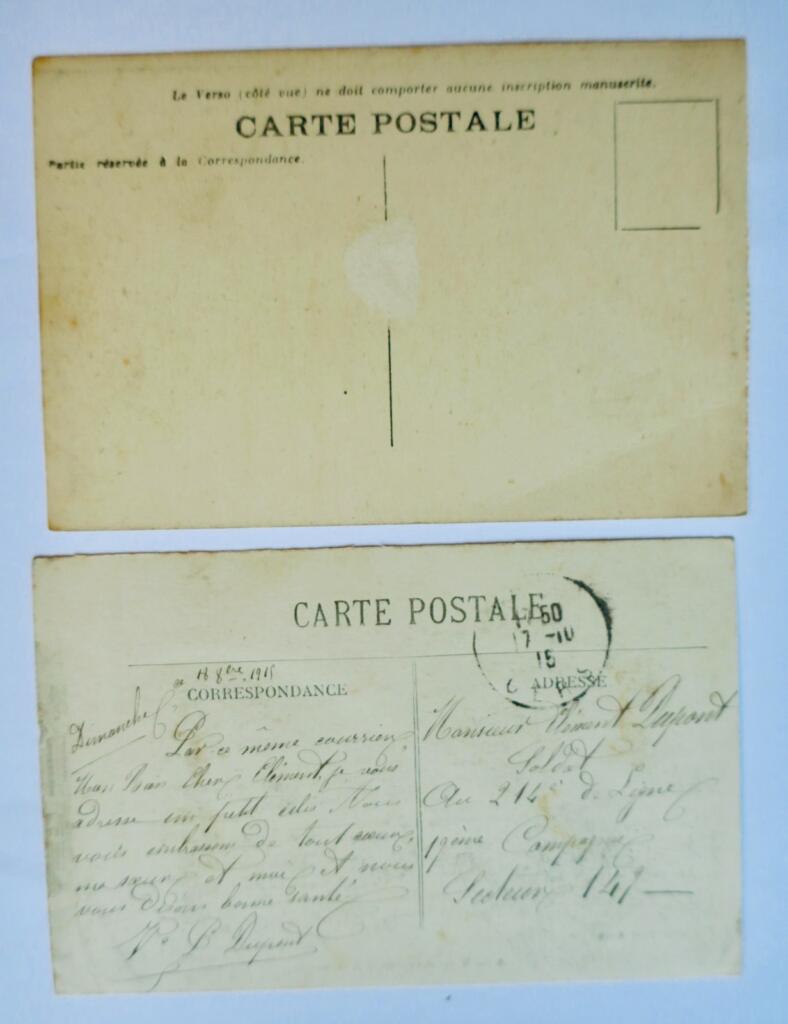 Le Verso (côté vue) ne doit comporter aucune inscription manuscrite.
CARTE POSTALE
Partie réservée à la Correspondance.
CARTE POSTALE
50
17 -10
15
8bre 1915
CORRESPONDANCE
ADRESSE
Dimanche
Par ce même courrier
Mon bien Cher Clément, je vous
adresse un petit colis Nous
vous embrassons de tout coeur,
ma soeur et moi et nous
vous désirons bonne santé
Ve B Dupont
Monsieur Clément Dupont
Soldat
Au 214e de Ligne
19ème Compagnie
Secteur 149